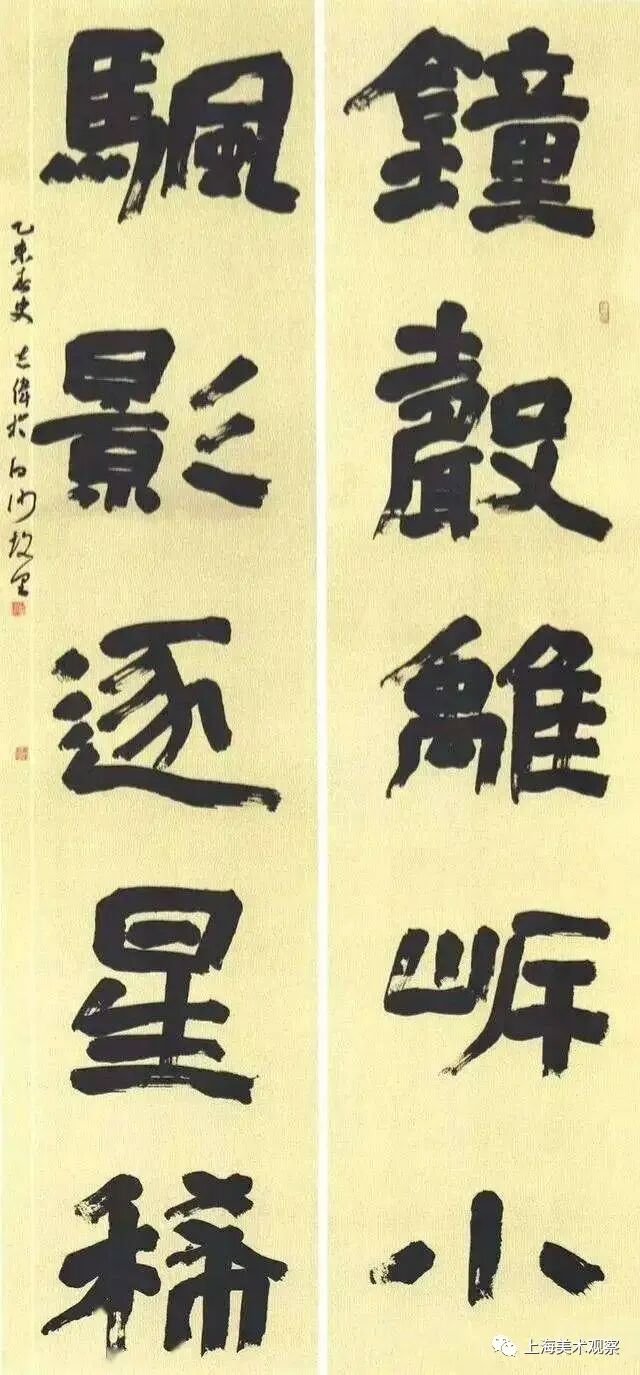 鐘聲離岸小
颿影逐星稀
乙未春史 志偉於白沙故里
上海美术观察